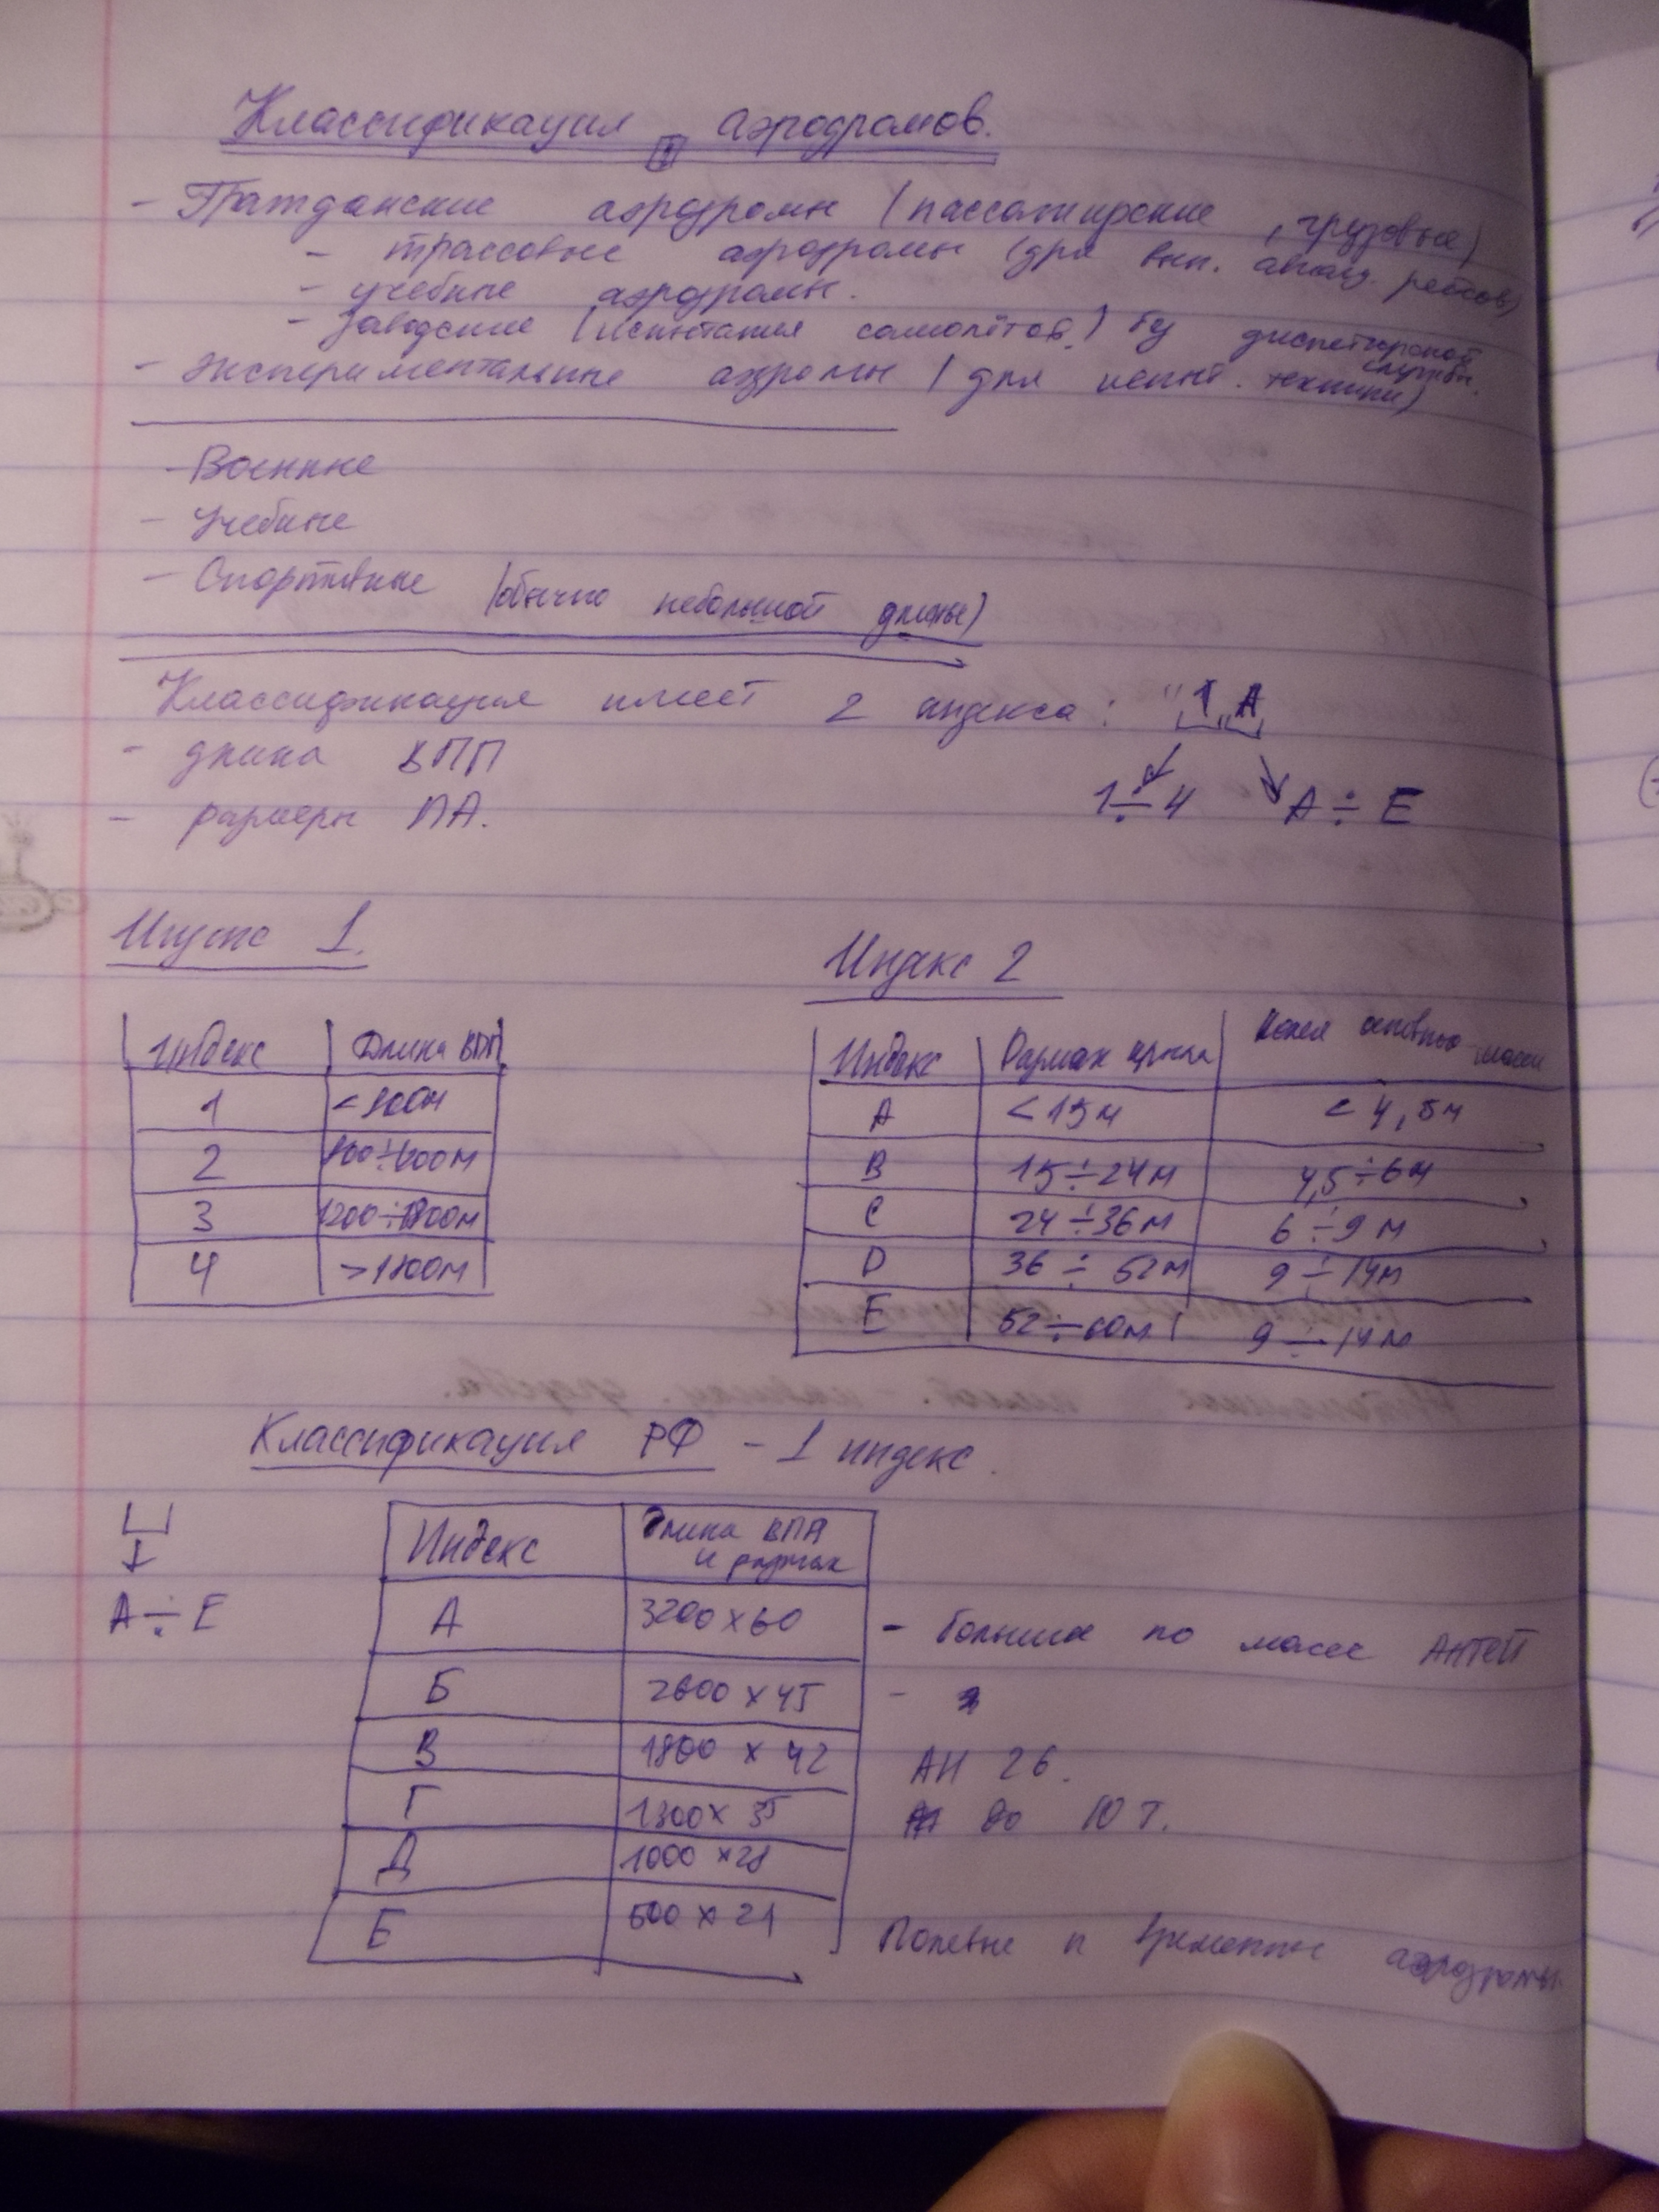 Классификация аэродромов.
- Гражданские аэродромы (пассажирские, грузовые)
- трассовые аэродромы (для вып. авиац. рейсов)
- учебные аэродромы.
- Заводские (испытания самолётов.) без диспетчерской службы.
- Экспериментальные аэдромы (для испыт. техники)
- Военные
- Учебные
- Спортивные (обычно небольшой длины)
Классификация имеет 2 индекса: "1 А
- длина ВПП
- размеры ЛА.
1÷4 А÷Е
Индекс 1.
Индекс Длина ВПП
1 <800м
2 800÷
3 1200÷1800м
4 >1800м
Индекс 2
Индекс Размах крыла Колея основного шасси
A <15м < 4,5м
B 15÷24м 4,5÷6м
C 24÷36м 6÷9м
D 36÷52м 9÷14м
E 52÷60м 9÷14м
Классификация РФ - 1 индекс.
А÷Е
Индекс Длина ВПП и размах
А 3200×60 - большие по массе АНТЕЙ
Б 2600×45 -
В 1800×42 АН 26.
Г 1300×35 до 10 т.
Д 1000×28
Е 500×21 Полевые и временные аэродромы.